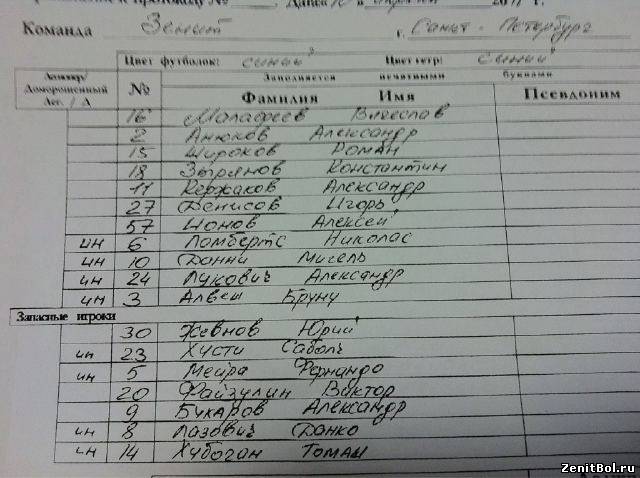 к протоколу №
Команда Зенит г. Санкт-Петербург
Цвет футболок: синий Цвет гетр: синий
Легионер/ Доморощенный Лег. / Д № Заполняется печатными буквами
Фамилия Имя Псевдоним
16 Малафеев Вячеслав
2 Анюков Александр
15 Широков Роман
18 Зырянов Константин
11 Кержаков Александр
27 Денисов Игорь
57 Ионов Алексей
ин 6 Ломбертс Николас
ин 10 Данни Мигель
ин 24 Лукович Александр
ин 3 Алвеш Бруну
Запасные игроки
30 Жевнов Юрий
ин 23 Хусти Саболч
ин 5 Мейра Фернандо
20 Файзулин Виктор
9 Бухаров Александр
ин 8 Лазович Данко
ин 14 Хубочан Томаш
ZenitBol.ru